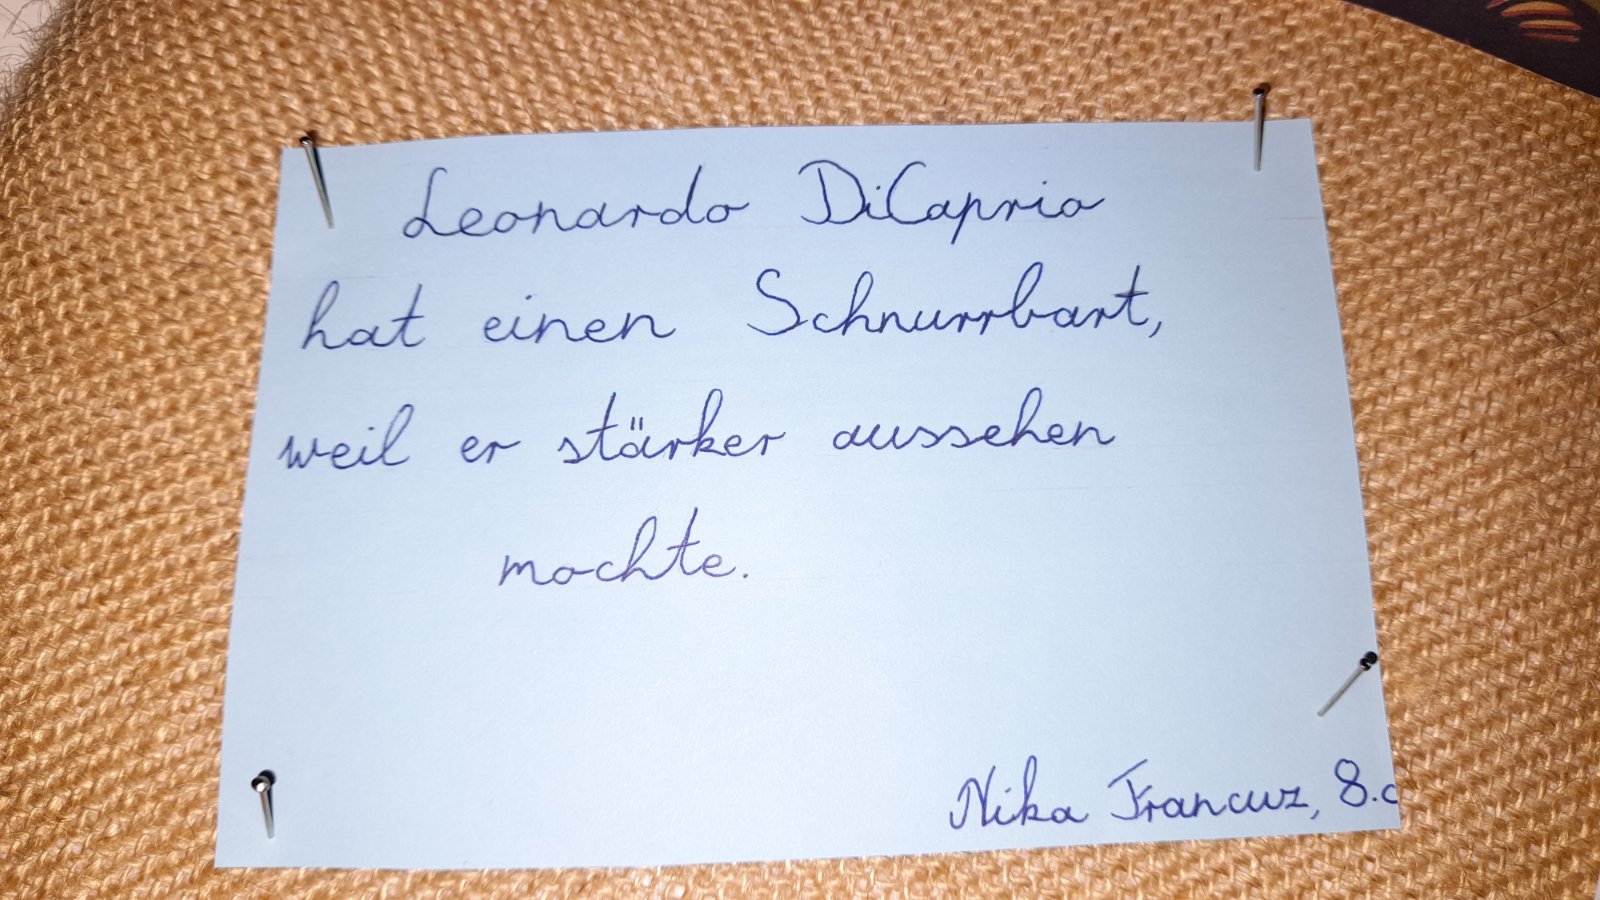 Leonardo DiCaprio
hat einen Schnurrbart,
weil er stärker aussehen
mochte.
Nika Francuz, 8.c